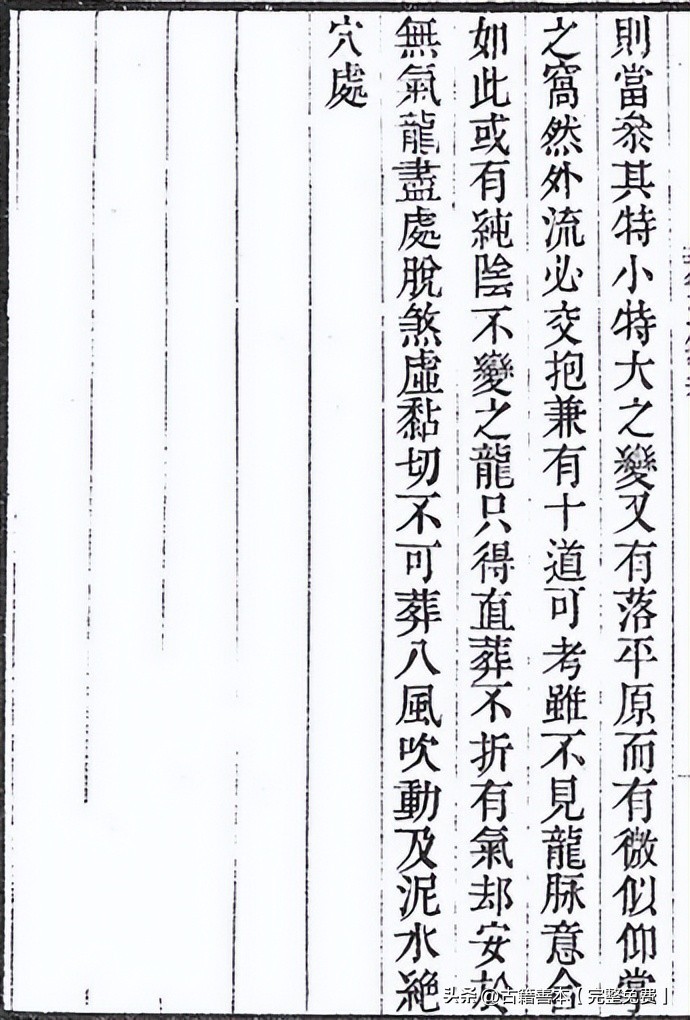 則當叅其特小特大之變又有落平原而有微似仰掌
之窩然外流必交抱兼有十道可考雖不見龍脉意合
如此或有純陰不變之龍只得直葬不折有氣却安於
無氣龍盡處脫煞虛黏切不可葬八風吹動及泥水絶
穴處
头条@古籍善本【完整免费】